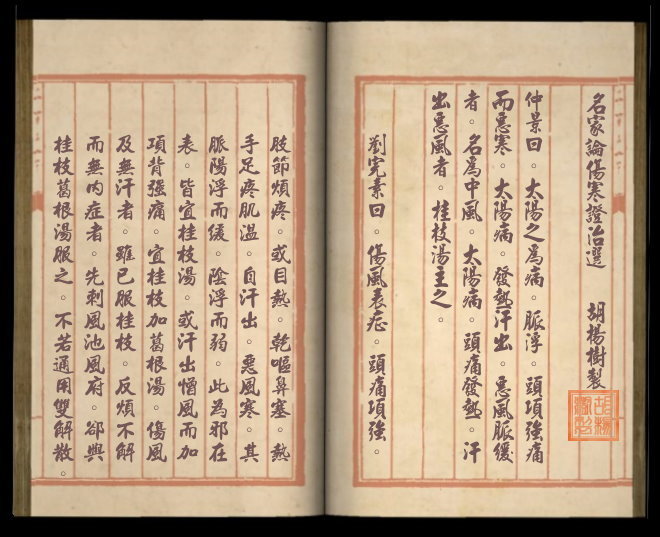 名家論傷寒證治選　胡楊樹製
仲景曰。太陽之為病。脈浮。頭項強痛
而惡寒。太陽病。發熱汗出。惡風脈緩
者。名為中風。太陽病。頭痛發熱。汗
出惡風者。桂枝湯主之。
劉完素曰。傷風表症。頭痛項強。
肢節煩疼。或目熱。乾嘔鼻塞。熱
手足疼肌溫。自汗出。惡風寒。其
脈陽浮而緩。陰浮而弱。此為邪在
表。皆宜桂枝湯。或汗出憎風而加
項背強痛。宜桂枝加葛根湯。傷風
及無汗者。雖已服桂枝。反煩不解
而無內症者。先刺風池風府。卻與
桂枝葛根湯服之。不若通用雙解散。